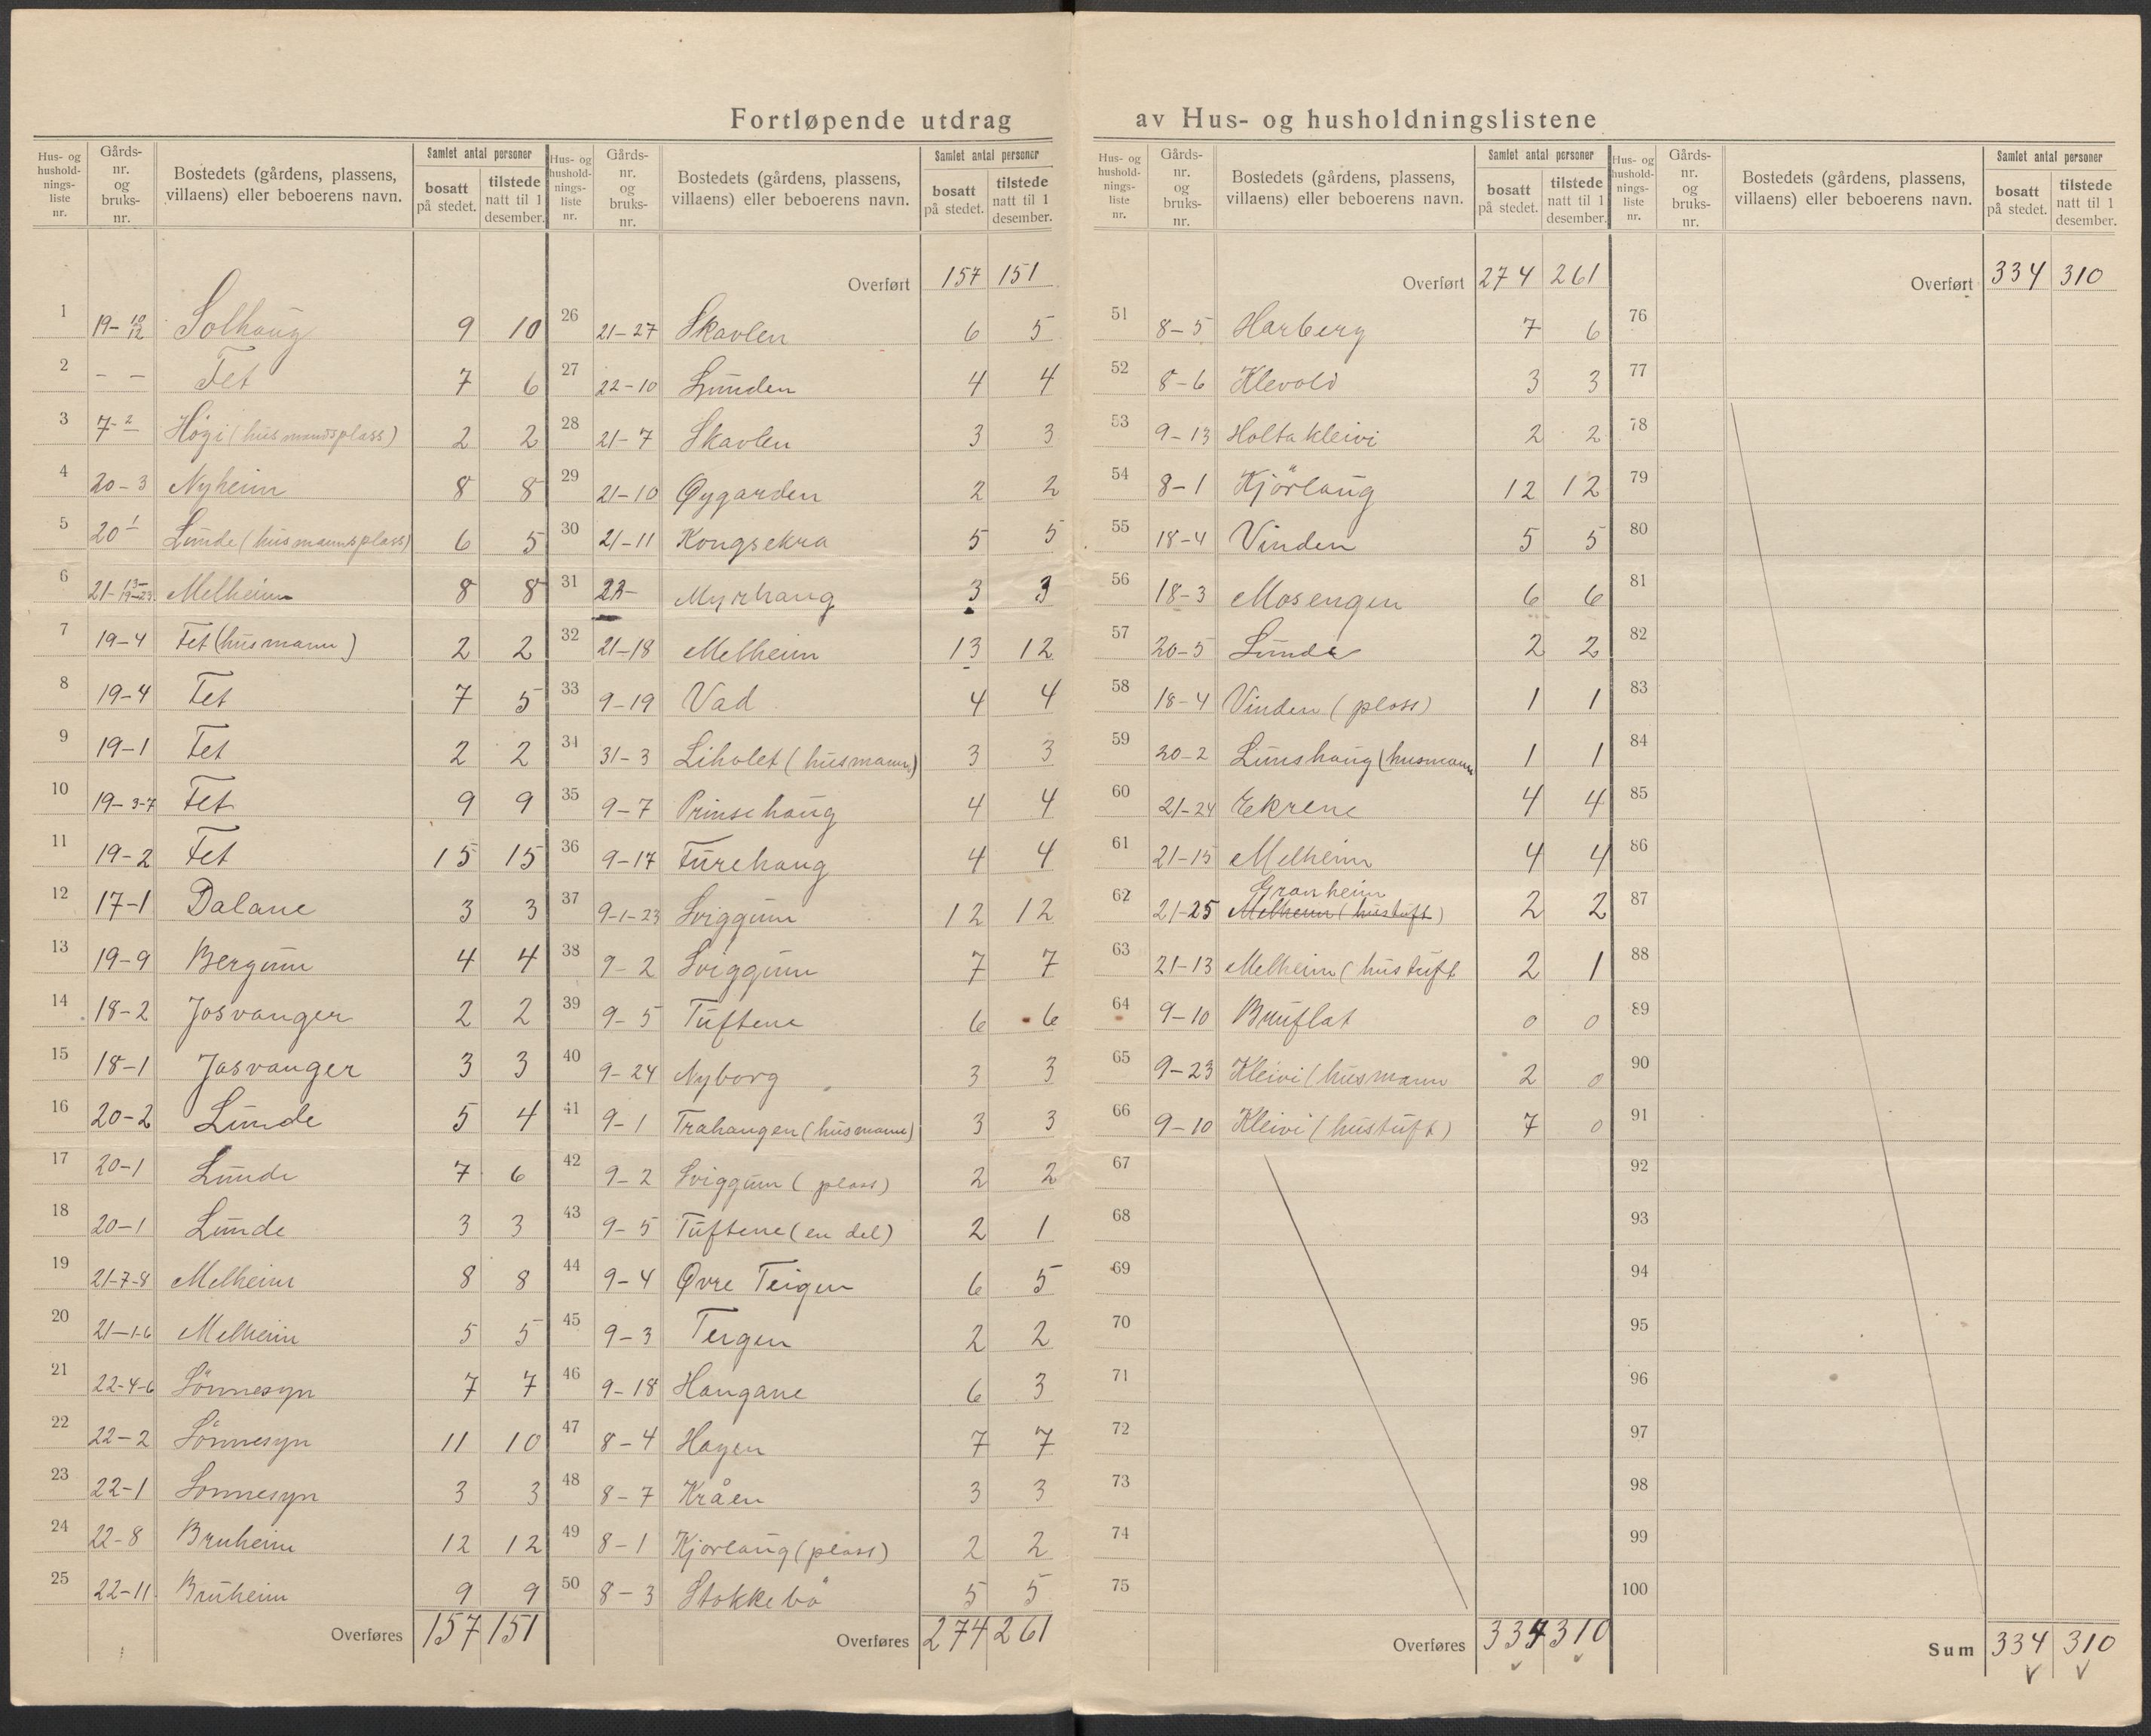 Fortløpende utdrag av Hus- og husholdningslistene
Hus- og husholdnings-liste nr. | Gårds-nr. og bruks-nr. | Bostedets (gårdens, plassens, villaens) eller beboerens navn. | Samlet antal personer | bosatt på stedet. | tilstede natt til 1 desember.
1 19-10/12 Solhaug 9 10
2 – – Fet 7 6
3 7-2 Høgi (husmandsplass) 2 2
4 20-3 Nyheim 8 8
5 20-1 Lunde (husmannsplass) 6 5
6 21-13-19-23 Melheim 8 8
7 19-4 Fet (husmann) 2 2
8 19-4 Fet 7 5
9 19-1 Fet 2 2
10 19-3-7 Fet 9 9
11 19-2 Fet 15 15
12 17-1 Dalane 3 3
13 19-9 Bergum 4 4
14 18-2 Josvanger 2 2
15 18-1 Jasvanger 3 3
16 20-2 Lunde 5 4
17 20-1 Lunde 7 6
18 20-1 Lunde 3 3
19 21-7-8 Melheim 8 8
20 21-1-6 Melheim 5 5
21 22-4-6 Sønnesyn 7 7
22 22-2 Sønnesyn 11 10
23 22-1 Sønnesyn 3 3
24 22-8 Bruheim 12 12
25 22-11 Bruheim 9 9
Overføres 157 151
Hus- og husholdnings-liste nr. | Gårds-nr. og bruks-nr. | Bostedets (gårdens, plassens, villaens) eller beboerens navn. | Samlet antal personer | bosatt på stedet. | tilstede natt til 1 desember.
Overført 157 151
26 21-27 Skavlen 6 5
27 22-10 Lunden 4 4
28 21-7 Skavlen 3 3
29 21-10 Øygarden 2 2
30 21-11 Kongsekra 5 5
31 22- Myrhaug 3 3
32 21-18 Melheim 13 12
33 9-19 Vad 4 4
34 31-3 Liholet (husmann) 3 3
35 9-7 Prinsehaug 4 4
36 9-17 Furehaug 4 4
37 9-1-23 Sviggum 12 12
38 9-2 Sviggum 7 7
39 9-5 Tuftene 6 6
40 9-24 Nyborg 3 3
41 9-1 Trahaugen (husmann) 3 3
42 9-2 Sviggum (plass) 2 2
43 9-5 Tuftene (en del) 2 1
44 9-4 Øvre Teigen 6 5
45 9-3 Teigen 2 2
46 9-18 Haugane 6 3
47 8-4 Hagen 7 7
48 8-7 Kråen 3 3
49 8-1 Kjørlaug (plass) 2 2
50 8-3 Stokkebø 5 5
Overføres 274 261
Hus- og husholdnings-liste nr. | Gårds-nr. og bruks-nr. | Bostedets (gårdens, plassens, villaens) eller beboerens navn. | Samlet antal personer | bosatt på stedet. | tilstede natt til 1 desember.
Overført 274 261
51 8-5 Harberg 7 6
52 8-6 Klevold 3 3
53 9-13 Holtakleivi 2 2
54 8-1 Kjörlaug 12 12
55 18-4 Vinden 5 5
56 18-3 Mosengen 6 6
57 20-5 Lunde 2 2
58 18-4 Vinden (plass) 1 1
59 20-2 Lunshaug (husmann 1 1
60 21-24 Ekrene 4 4
61 21-15 Melheim 4 4
Granheim
62 21-25 Melheim (hustuft) 2 2
63 21-13 Melheim (hustuft 2 1
64 9-10 Bruflat 0 0
65 9-23 Kleivi (husmann 2 0
66 9-10 Kleivi (hustuft) 7 0
67
68
69
70
71
72
73
74
75
Overføres 334 310
Hus- og husholdnings-liste nr. | Gårds-nr. og bruks-nr. | Bostedets (gårdens, plassens, villaens) eller beboerens navn. | Samlet antal personer | bosatt på stedet. | tilstede natt til 1 desember.
Overført 334 310
76
77
78
79
80
81
82
83
84
85
86
87
88
89
90
91
92
93
94
95
96
97
98
99
100
Sum 334 310